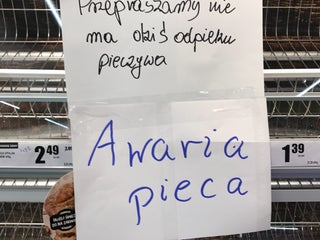 Przepraszamy nie
ma dziś odpieku
pieczywa
Awaria
pieca
2 49
1 39